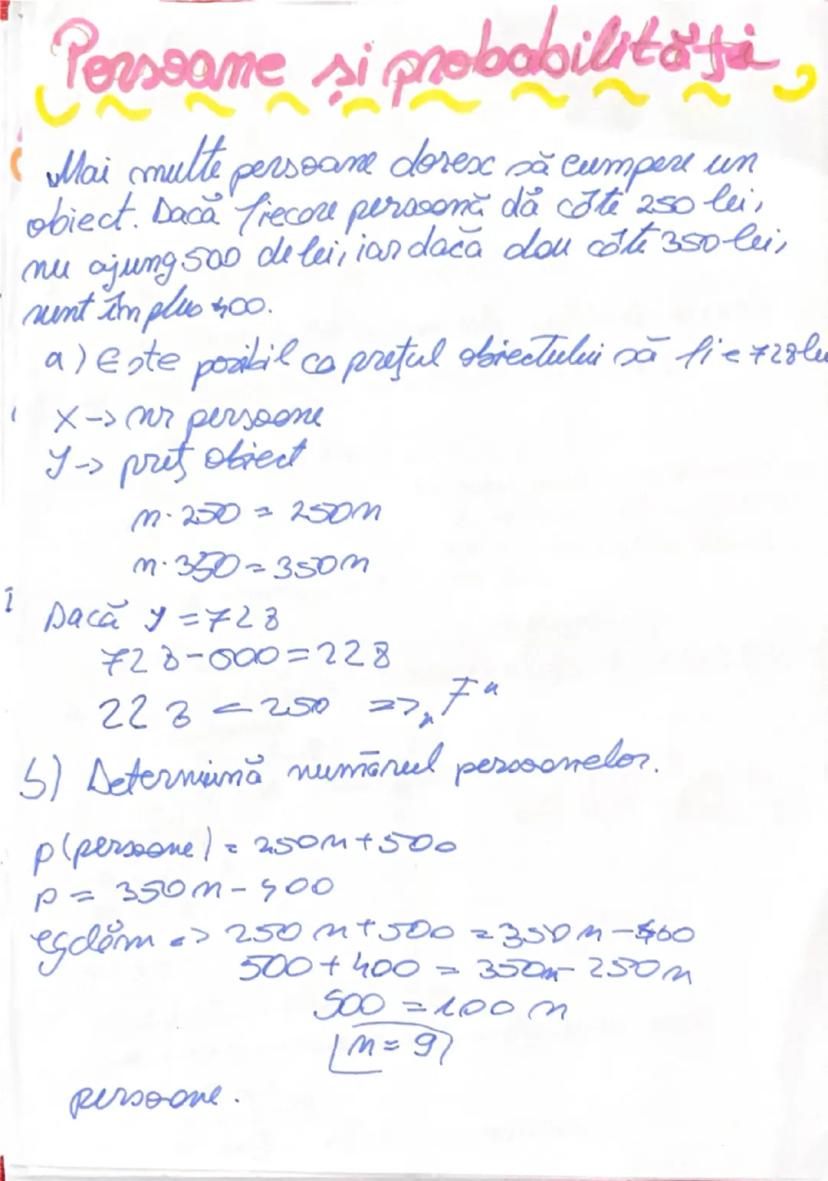 Persoane și probabilități
Mai multe persoane doresc să cumpere un
obiect. Dacă fiecare persoană dă câte 250 lei,
nu ajung 500 de lei, iar dacă dau câte 350 lei,
sunt în plus 400.
a) Este posibil ca prețul obiectului să fie 728 le
X -> nr persoane
Y -> preț obiect
n · 250 = 250n
n · 350 = 350n
Dacă y = 728
728 - 500 = 228
228 < 250 => "F"
b) Determină numărul persoanelor.
p (persoane) = 250n + 500
p = 350n - 400
egalăm => 250n + 500 = 350n - 400
500 + 400 = 350n - 250n
900 = 100n
n = 9
persoane.